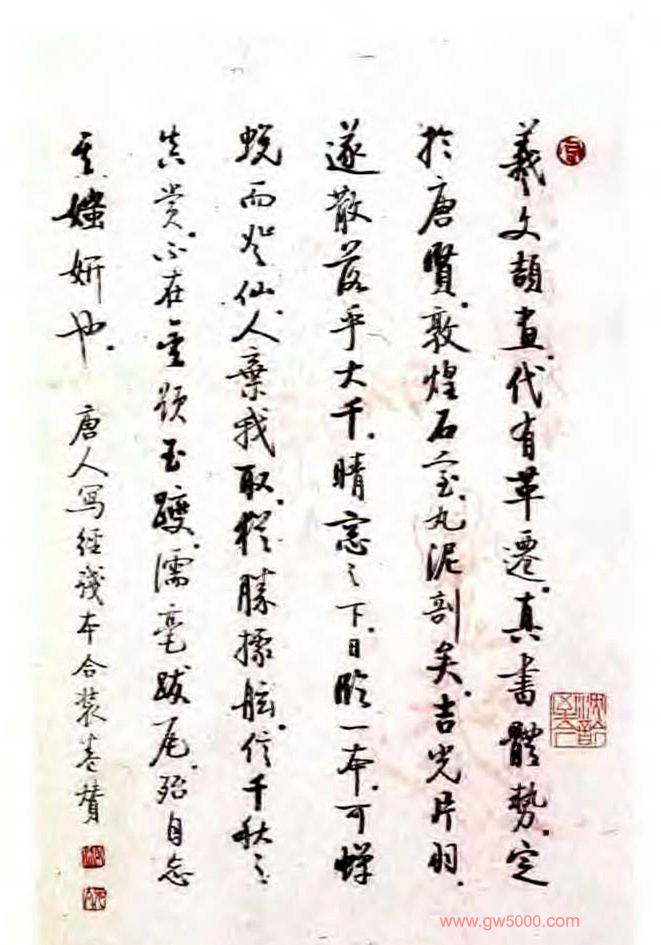 羲文頡畫代有革遷真書體勢定
於唐賢敦煌石室丸泥剖矣吉光片羽
遂散落乎大千晴窓之下日臨一本可蟬
蜕而登仙人棄我取猶勝據舷信千秋之
真賞不在金題玉躞濡毫跋尾殆自忘
其媸妍也
唐人寫經殘本合裝卷贊
www.gw5000.com